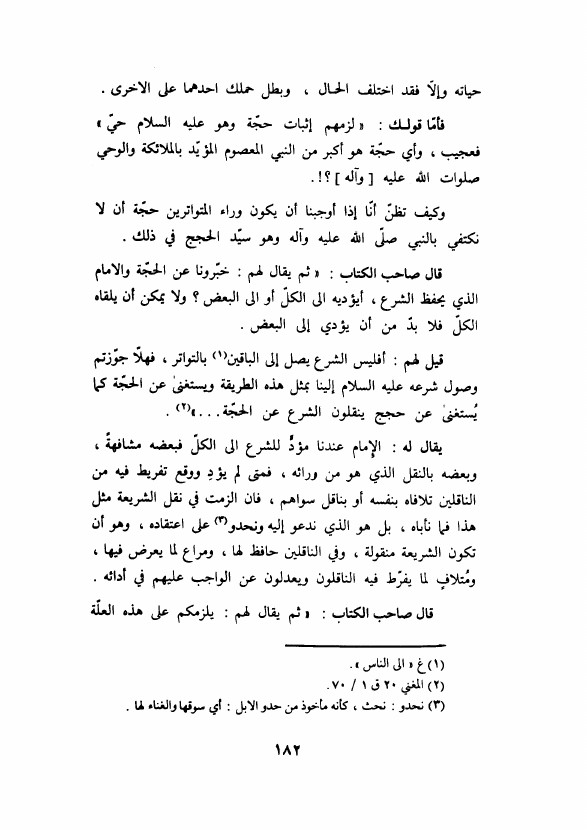 حياته وإلّا فقد اختلف الحال ، وبطل حملك احدهما على الاخرى .
فأمّا قولك : « لزمهم إثبات حجّة وهو عليه السلام حيّ »
فعجيب ، وأي حجّة هو أكبر من النبي المعصوم المؤيّد بالملائكة والوحي
صلوات الله عليه [ وآله ] ؟!.
وكيف تظنّ أنّا إذا أوجبنا أن يكون وراء المتواترين حجّة أن لا
نكتفي بالنبي صلّى الله عليه وآله وهو سيّد الحجج في ذلك .
قال صاحب الكتاب : « ثم يقال لهم : خبّرونا عن الحجّة والامام
الذي يحفظ الشرع ، أيؤديه الى الكلّ أو الى البعض ؟ ولا يمكن أن يلقاه
الكلّ فلا بدّ من أن يؤدي إلى البعض .
قيل لهم : أفليس الشرع يصل إلى الباقين(١) بالتواتر ، فهلّا جوّزتم
وصول شرعه عليه السلام إلينا بمثل هذه الطريقة ويستغنىٰ عن الحجّة كما
يُستغنىٰ عن حجج ينقلون الشرع عن الحجّة . . . »(٢) .
يقال له : الإمام عندنا مؤدٍّ للشرع الى الكلّ فبعضه مشافهةً ،
وبعضه بالنقل الذي هو من ورائه ، فمتى لم يؤدِ ووقع تفريط فيه من
الناقلين تلافاه بنفسه أو بناقل سواهم ، فان الزمت في نقل الشريعة مثل
هذا فما نأباه ، بل هو الذي ندعو إليه ونحدو(٣) على اعتقاده ، وهو أن
تكون الشريعة منقولة ، وفي الناقلين حافظ لها ، ومراع لما يعرض فيها ،
ومُتلافٍ لما يفرّط فيه الناقلون ويعدلون عن الواجب عليهم في أدائه .
قال صاحب الكتاب : « ثم يقال لهم : يلزمكم على هذه العلّة
(١) غ « الى الناس ».
(٢) المغني ٢٠ ق ١ / ٧٠.
(٣) نحدو : نحث ، كأنه مأخوذ من حدو الابل : أي سوقها والغناء لها .
١٨٢